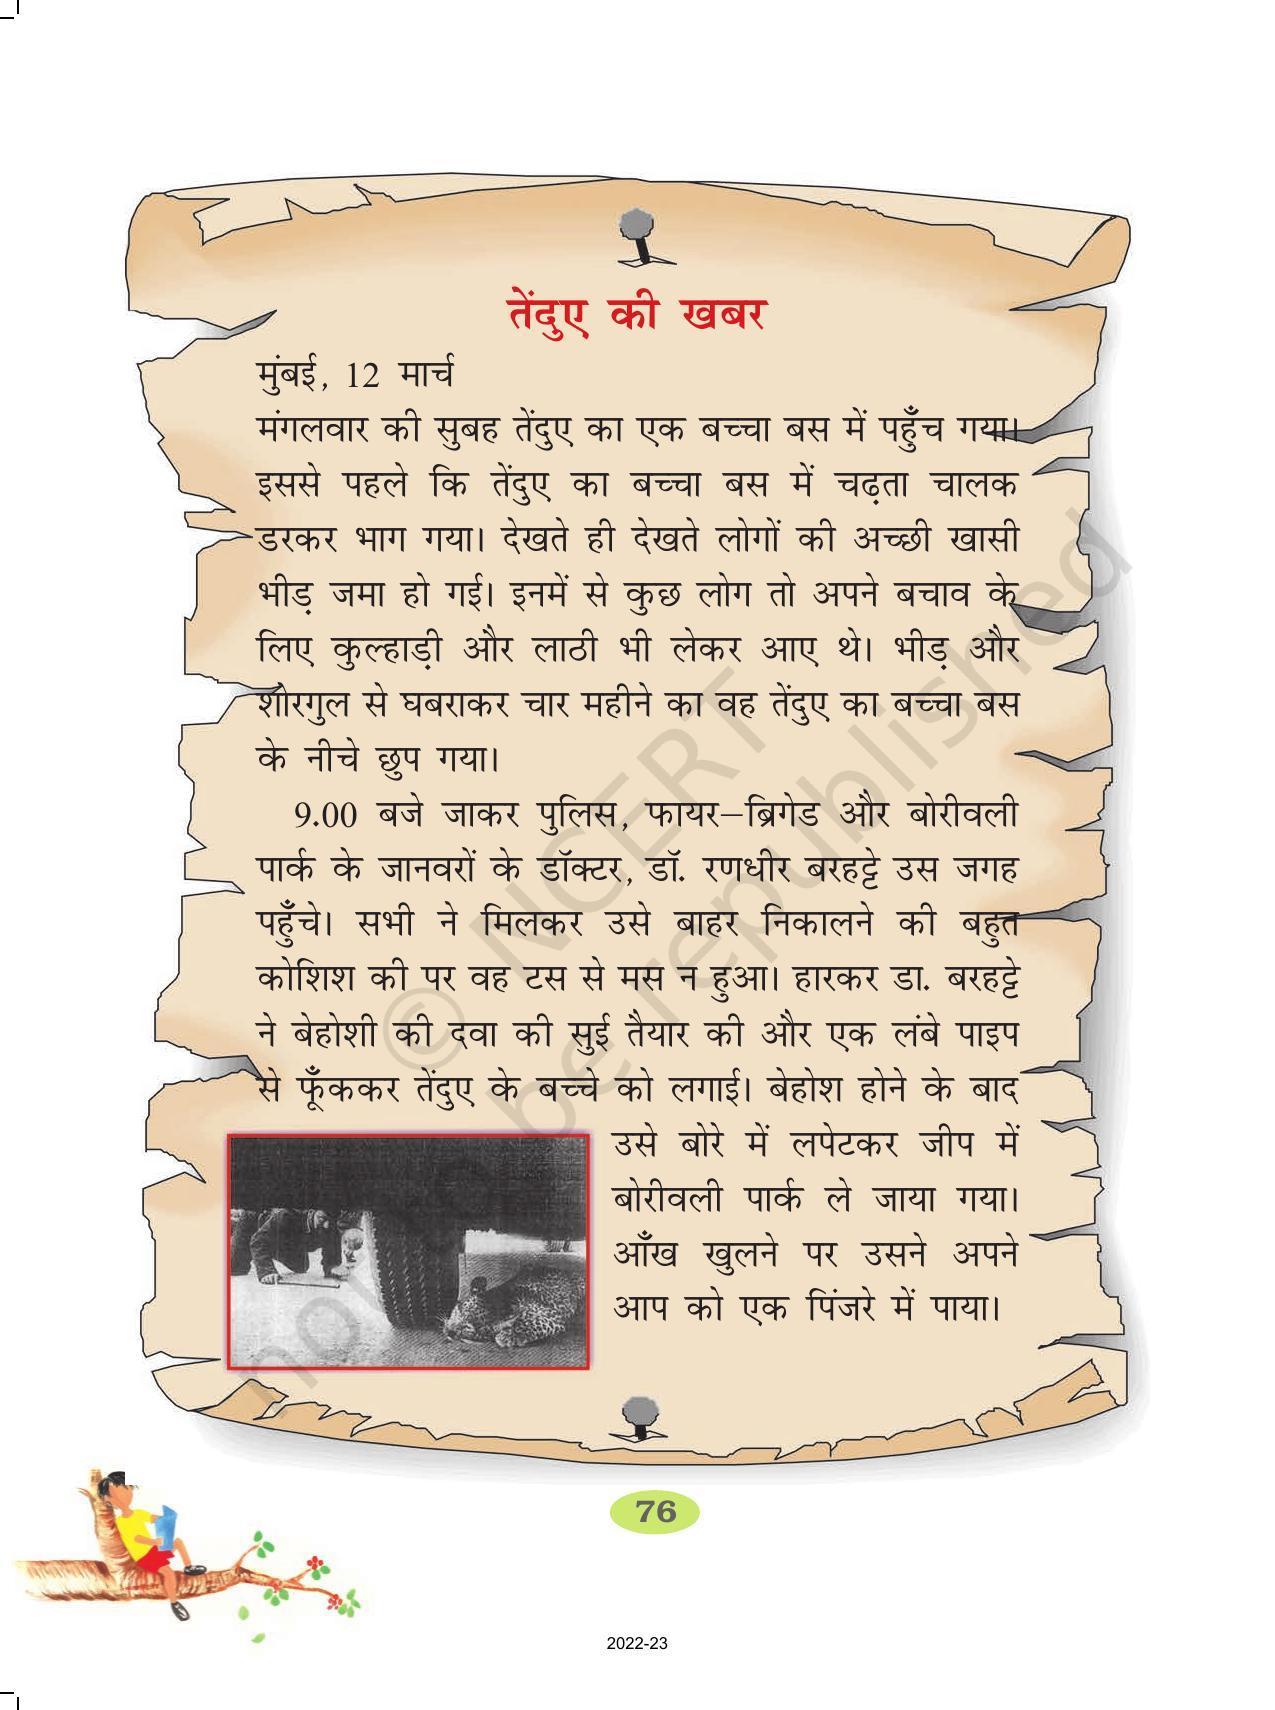 तेंदुए की खबर
मुंबई, 12 मार्च
मंगलवार की सुबह तेंदुए का एक बच्चा बस में पहुँच गया।
इससे पहले कि तेंदुए का बच्चा बस में चढ़ता चालक
डरकर भाग गया। देखते ही देखते लोगों की अच्छी खासी
भीड़ जमा हो गई। इनमें से कुछ लोग तो अपने बचाव के
लिए कुल्हाड़ी और लाठी भी लेकर आए थे। भीड़ और
शोरगुल से घबराकर चार महीने का वह तेंदुए का बच्चा बस
के नीचे छुप गया।
9.00 बजे जाकर पुलिस, फायर–ब्रिगेड और बोरीवली
पार्क के जानवरों के डॉक्टर, डॉ. रणधीर बरहट्टे उस जगह
पहुँचे। सभी ने मिलकर उसे बाहर निकालने की बहुत
कोशिश की पर वह टस से मस न हुआ। हारकर डा. बरहट्टे
ने बेहोशी की दवा की सुई तैयार की और एक लंबे पाइप
से फूँककर तेंदुए के बच्चे को लगाई। बेहोश होने के बाद
उसे बोरे में लपेटकर जीप में
बोरीवली पार्क ले जाया गया।
आँख खुलने पर उसने अपने
आप को एक पिंजरे में पाया।
© NCERT
not to be republished
76
2022-23